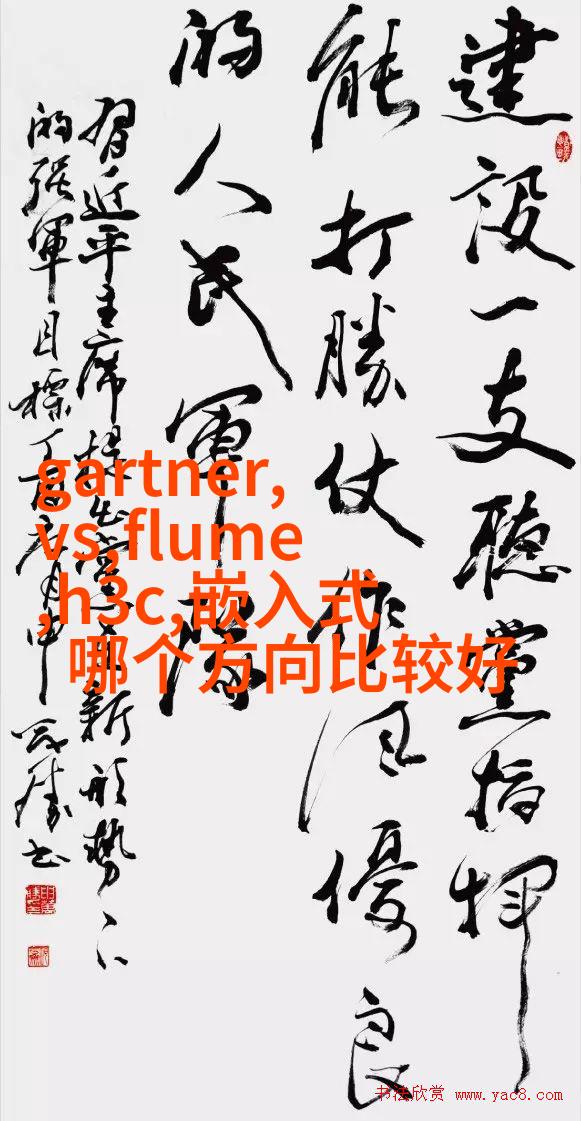 建設一支聽黨指揮
能打勝仗作風優良
的人民軍隊
習近平主席提出黨在新形勢下
的强軍目標丁酉
gartner,
vs flume
,h3c,嵌入式
哪个方向比较好
书法欣赏 www.yac8.com